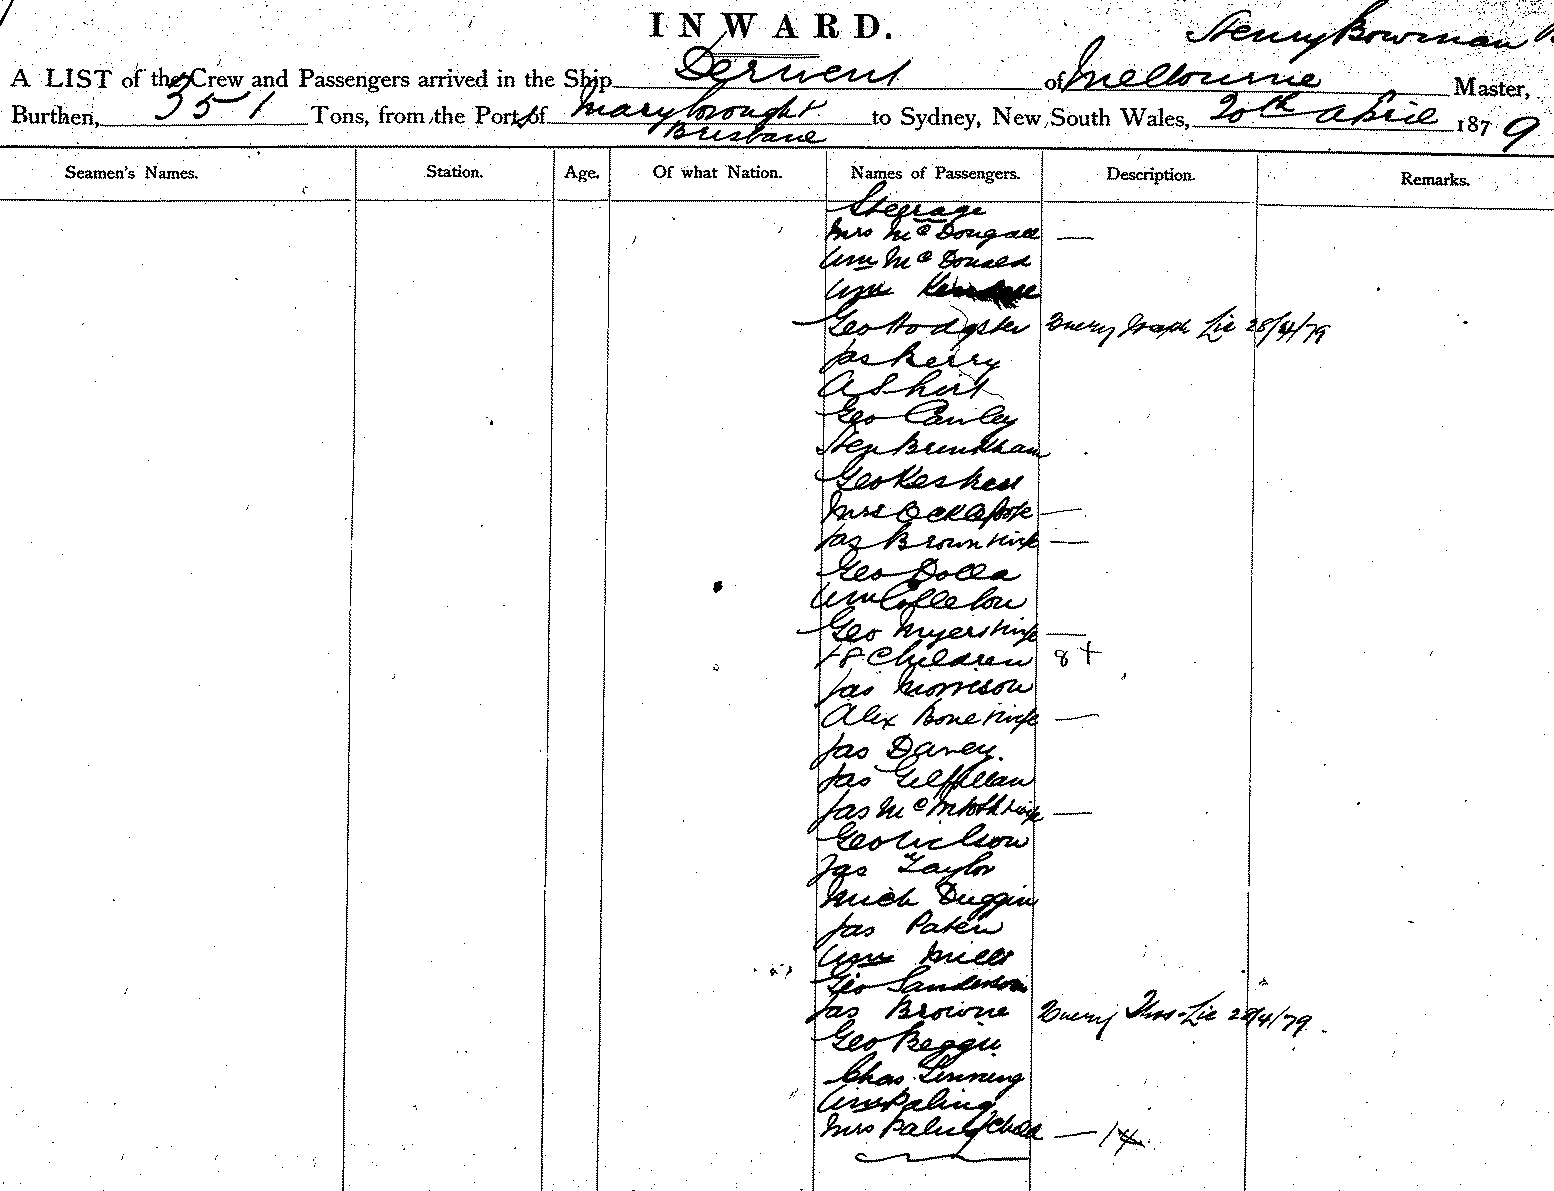 INWARD.
Henry Bowman
A LIST of the Crew and Passengers arrived in the Ship Derwent of Melbourne Master,
Burthen, 351 Tons, from the Port of Maryborought to Sydney, New South Wales, 20th April 1879
Brisbane
Seamen's Names. Station. Age. Of what Nation. Names of Passengers. Description. Remarks.
Steerage
Mrs McDougall —
Wm McDonald
Wm
Geo Hodgster Query Lic 28/4/79
Jas Kerry
A Shirt
Geo Cawley
Brinkham
Geo
Mrs —
Jas Brown —
Geo Dolla
Wm
Geo Myers —
+ 8 Children 8 +
Jas Morrison
Alex Bone —
Jas Davey.
Jas Gilfillan
Jas —
Geo
Jas Taylor
Mich Duggin
Jas Paten
Wm Mills
Geo Sanderson
Jas Browne Query Thos. Lic 28/4/79
Geo Beggie
Chas Linning
Wm Paling
Mrs Paling Child — 1